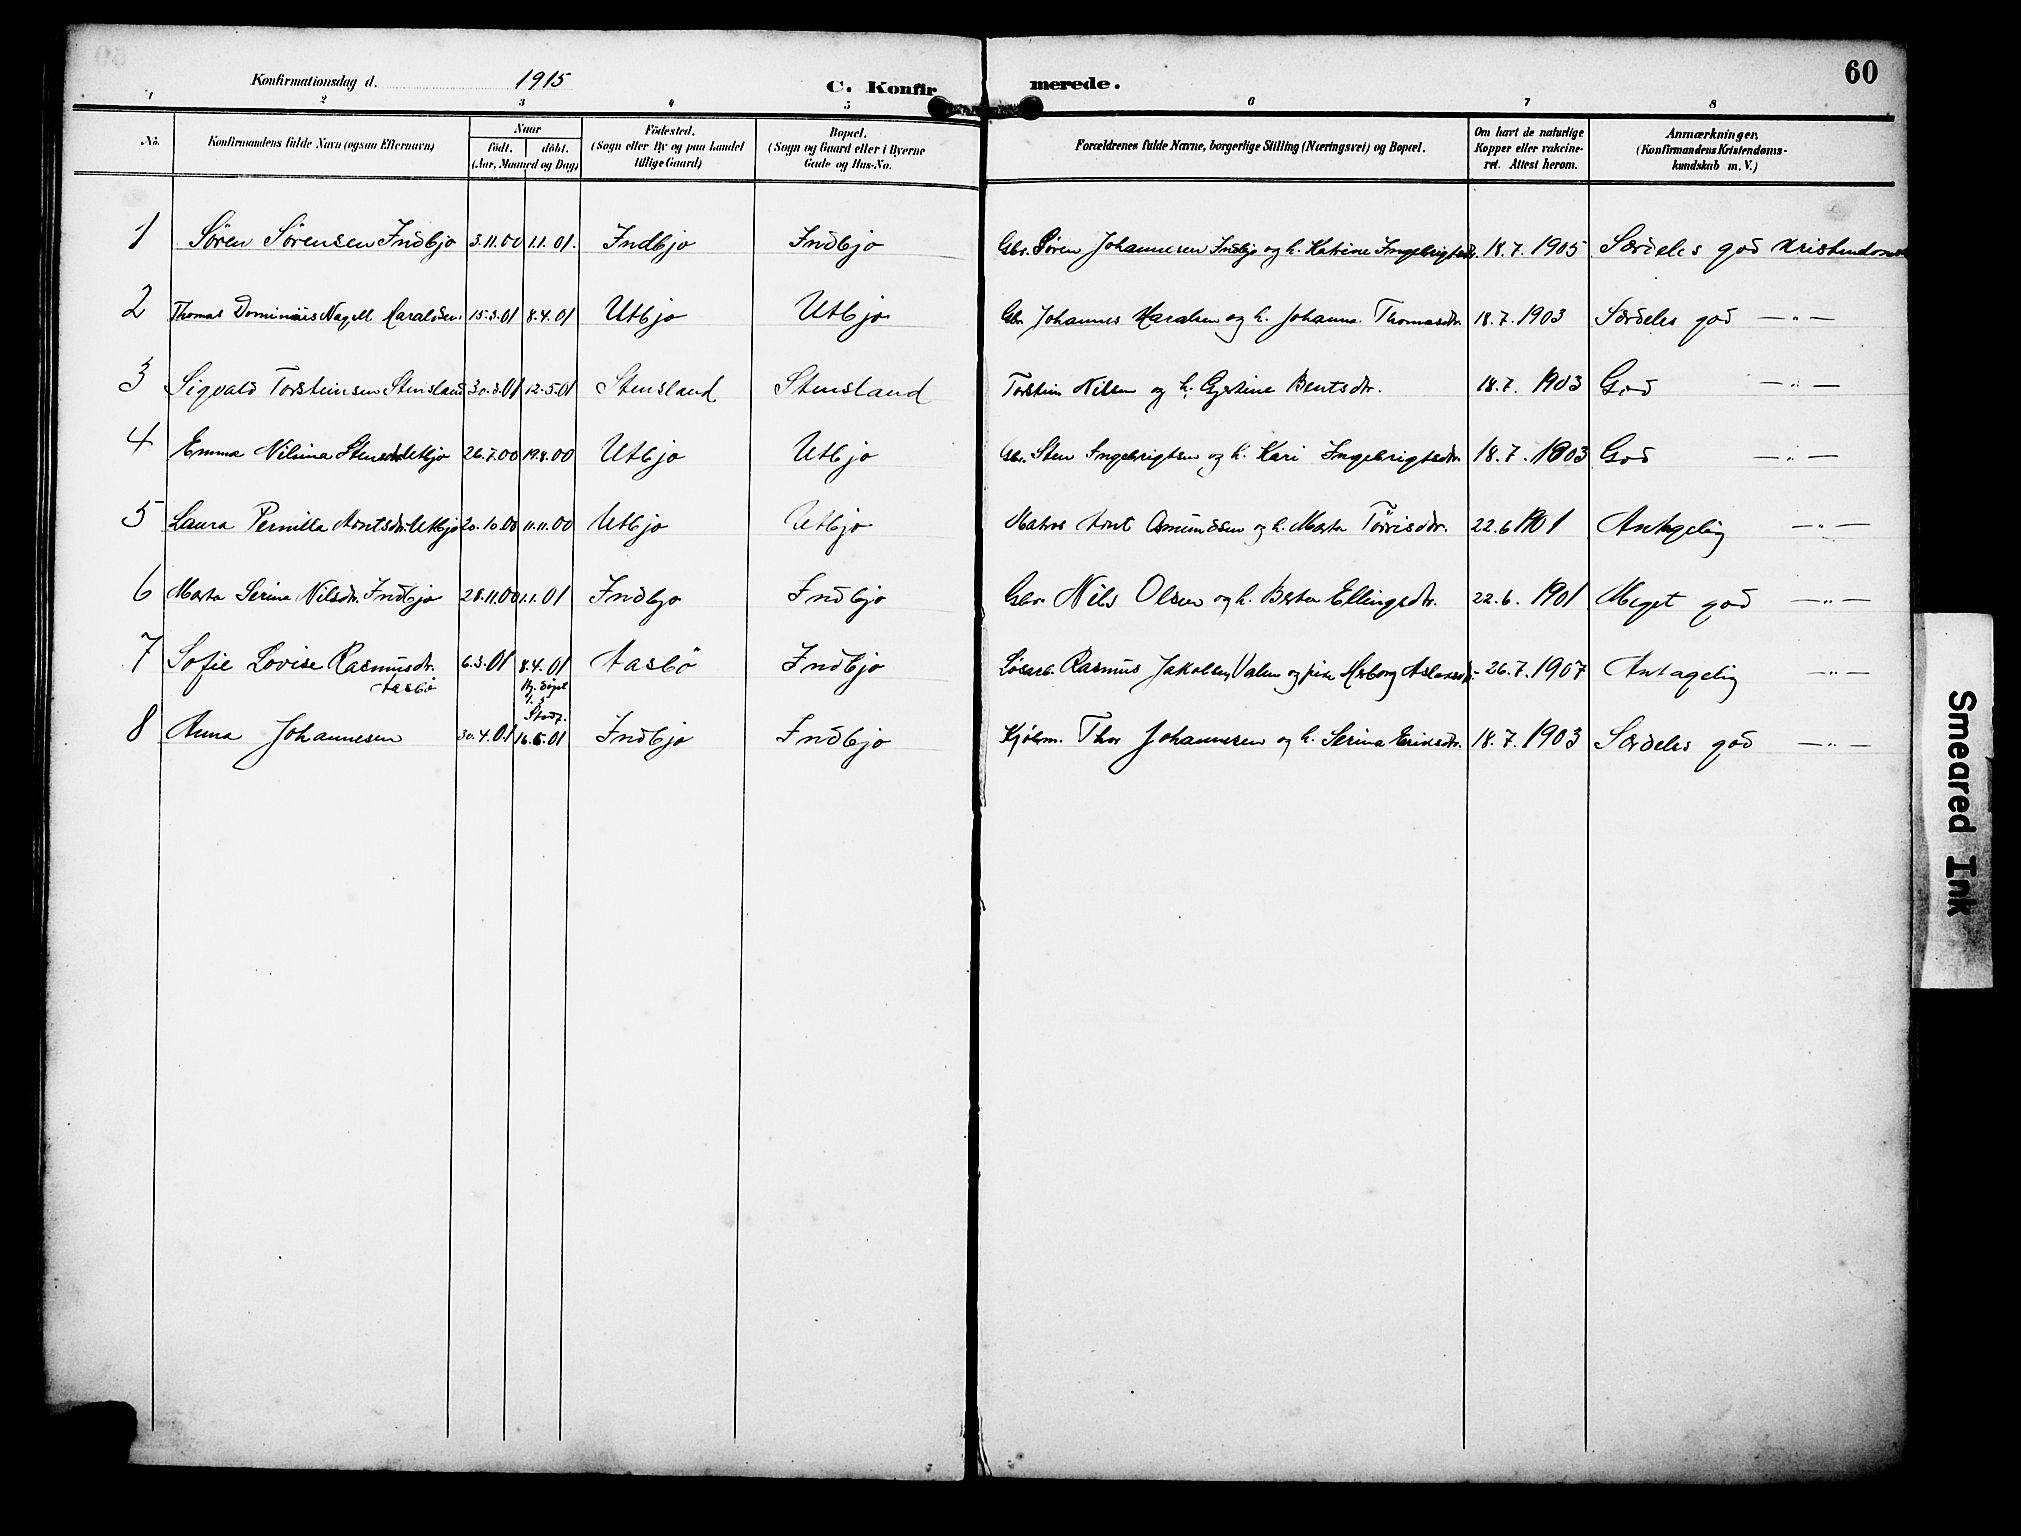 60
Konfirmationsdag d. 1915
C. Konfirmerede.
1 2 3 4 5 6 7 8
No.
Konfirmandens fulde Navn (ogsaa Efternavn)
Naar
født. døbt.
(Aar, Maaned og Dag)
Fødested.
(Sogn eller By og paa Landet
tillige Gaard)
Bopæl.
(Sogn og Gaard eller i Byerne
Gade og Hus-No.
Forældrenes fulde Navne, borgerlige Stilling (Næringsvei) og Bopæl.
Om havt de naturlige
Kopper eller vakcine-
ret. Attest herom.
Anmærkninger.
(Konfirmandens Kristendoms-
kundskab m. V.)
1 Søren Sørensen Indbjo 3.11.00 1.1.01. Indbjo Indbjo Gbr. Søren Johannesen Indbjo og h. Katrine Ingebrigtsdr. 18.7.1905 Særdeles god Kristendomsk
2 Thomas Nagell Haraldsen 15.3.01 8.4.01 Utbjo Utbjo Gbr. Johannes Haralsen og h. Johanna Thomasdr. 18.7.1903 Særdeles god —„—
3 Sigvald Torsteinsen Stensland 30.3.01 12.5.01 Stensland Stensland Torstein Nilsen og h. Gjertine Bentsdr. 18.7.1903 God —„—
4 Emma Nilsina Stensdr. Utbjo 26.7.00 19.8.00 Utbjo Utbjo Gbr. Sten Ingebrigtsen og h. Kari Ingebrigtsdr. 18.7.1903 God —„—
5 Laura Pernilla Arntsdr. Utbjo 20.10.00 11.11.00 Utbjo Utbjo Matros Arnt Osmundsen og h. Marta Tørrisdr. 22.6.1901 Antagelig —„—
6 Marta Serina Nilsdr. Indbjo 28.11.00 1.1.01 Indbjo Indbjo Gbr. Nils Olsen og h. Berta Ellingsdr. 22.6.1901 Meget god —„—
7 Sofie Lovise Rasmusdr. 6.3.01 8.4.01 Aasbø Indbjo Løsarb. Rasmus Jakobsen Valen og pike Herborg Aslaksdr. 26.7.1907 Antagelig —„—
Aasbø
Stadf.
8 Anna Johannesen 30.4.01 16.6.01 Indbjo Indbjo Kjøbm. Thor Johannesen og h. Serina Eriksdr. 18.7.1903 Særdeles god —„—
Smeared Ink